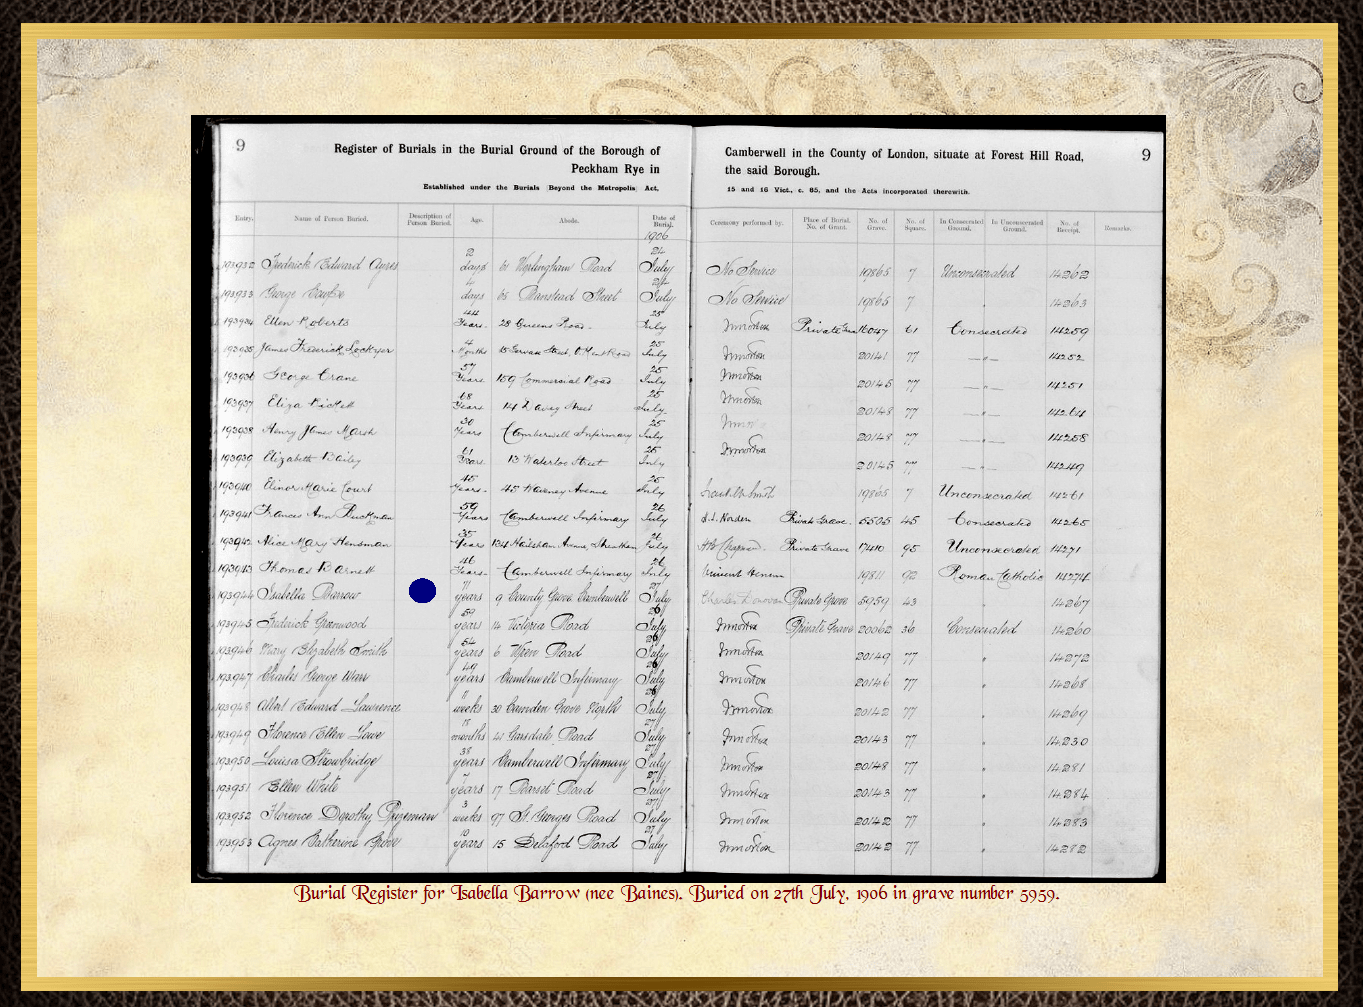 9
Register of Burials in the Burial Ground of the Borough of
Peckham Rye in
Established under the Burials (Beyond the Metropolis) Act,
Camberwell in the County of London, situate at Forest Hill Road,
9
the said Borough.
15 and 16 Vict., c. 85, and the Acts incorporated therewith.
Entry. Name of Person Buried. Description of Person Buried. Age. Abode. Date of Burial. Ceremony performed by. Place of Burial. No. of Grant. No. of Grave. No. of Square. In Consecrated Ground. In Unconsecrated Ground. No. of Receipt. Remarks.
1906
193932 Frederick Edward Ayres 2 days 61 Road 24 July No Service 19865 7 Unconsecrated 14262
193933 George 4 days 68 Street 24 July No Service 19865 7 " 14263
193934 Ellen Roberts 44 Years. 28 Queens Road. 25 July Private 16047 61 Consecrated 14259
193935 James Frederick Lockyer 4 Months 25 July 20141 77 — " — 14252
193936 George Crane 57 Years 159 Commercial Road 25 July 20145 77 — " — 14251
193937 Eliza 68 Years 144 Davey Street 25 July 20148 77 — " — 14264
193938 Henry James Marsh 30 Years Camberwell Infirmary 25 July 20148 77 — " — 14258
193939 Elizabeth Bailey 61 Years. 13 Waterloo Street 25 July 20145 77 — " — 14249
193940 Elinor Marie Court 45 Years. 45 Waveney Avenue 25 July 19865 7 Unconsecrated 14261
193941 Frances Ann Ruckman 59 Years Camberwell Infirmary 26 July Norden Private Grave. 5505 45 Consecrated 14265
193942 Alice Mary Hensman 35 Years 134 Hailsham Avenue, Streatham 26 July Private Grave 17410 95 Unconsecrated 14271
193943 Thomas Barnett 46 Years. Camberwell Infirmary 26 July Vincent 19811 92 Roman Catholic 14274
193944 Isabella Barrow 71 years 9 County Grove Camberwell 27 July Charles Donovan Private Grave 5959 43 " 14267
193945 Frederick Greenwood 59 years 14 Victoria Road 26 July Private Grave 20062 36 Consecrated 14260
193946 Mary Elizabeth Smith 54 years 6 Wren Road 26 July 20149 77 " 14272
193947 Charles George Warr 49 years Camberwell Infirmary 26 July 20146 77 " 14268
193948 Albert Edward Lawrence 11 weeks 30 Camden Grove North 26 July 20142 77 " 14269
193949 Florence Ellen Lowe 18 months 41 Garsdale Road 27 July 20143 77 " 14230
193950 Louisa Strowbridge 38 years Camberwell Infirmary 27 July 20148 77 " 14281
193951 Ellen White 7 years 17 Road 27 July 20143 77 " 14284
193952 Florence Dorothy Prizeman 3 weeks 97 St. Georges Road 27 July 20142 77 " 14283
193953 Agnes Catherine 10 years 15 Delaford Road 27 July 20142 77 " 14282
Burial Register for Isabella Barrow (nee Baines). Buried on 27th July, 1906 in grave number 5959.